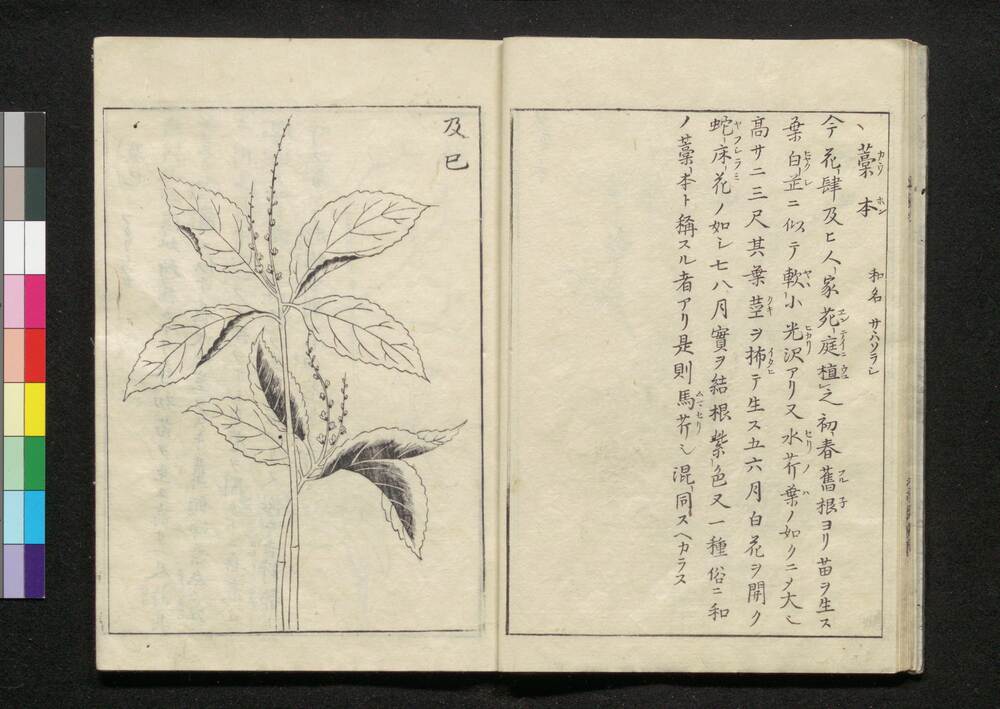 藁本 和名 サハソラシ
今花肆及ヒ人家苑庭ニ植之初春舊根ヨリ苗ヲ生ス
葉白芷ニ似テ軟小光沢アリ又水芹ノ葉ノ如クニメ大シ
高サ二三尺其葉茎ヲ抪テ生ス五六月白花ヲ開ク
蛇床花ノ如シ七八月實ヲ結根紫色又一種俗ニ和
ノ藁本ト稱スル者アリ是則馬芹シ混同スヘカラス
及已